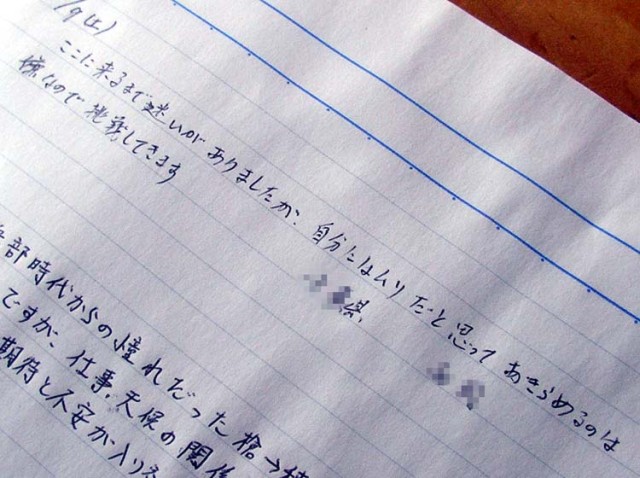 19(土)
ここに来るまで迷いがありましたが、自分にはムリだと思ってあきらめるのは
嫌なので挑戦してきます
県
部時代からの憧れだった槍→穂
ですが、仕事、天候の関係
期待と不安が入り